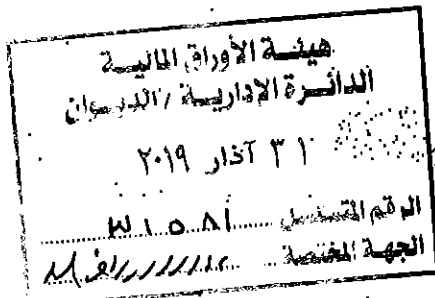 هيئة الأوراق المالية
الدائرة الإدارية / الديوان
٣١ آذار ٢٠١٩
الرقم المتسلسل
الجهة المختصة